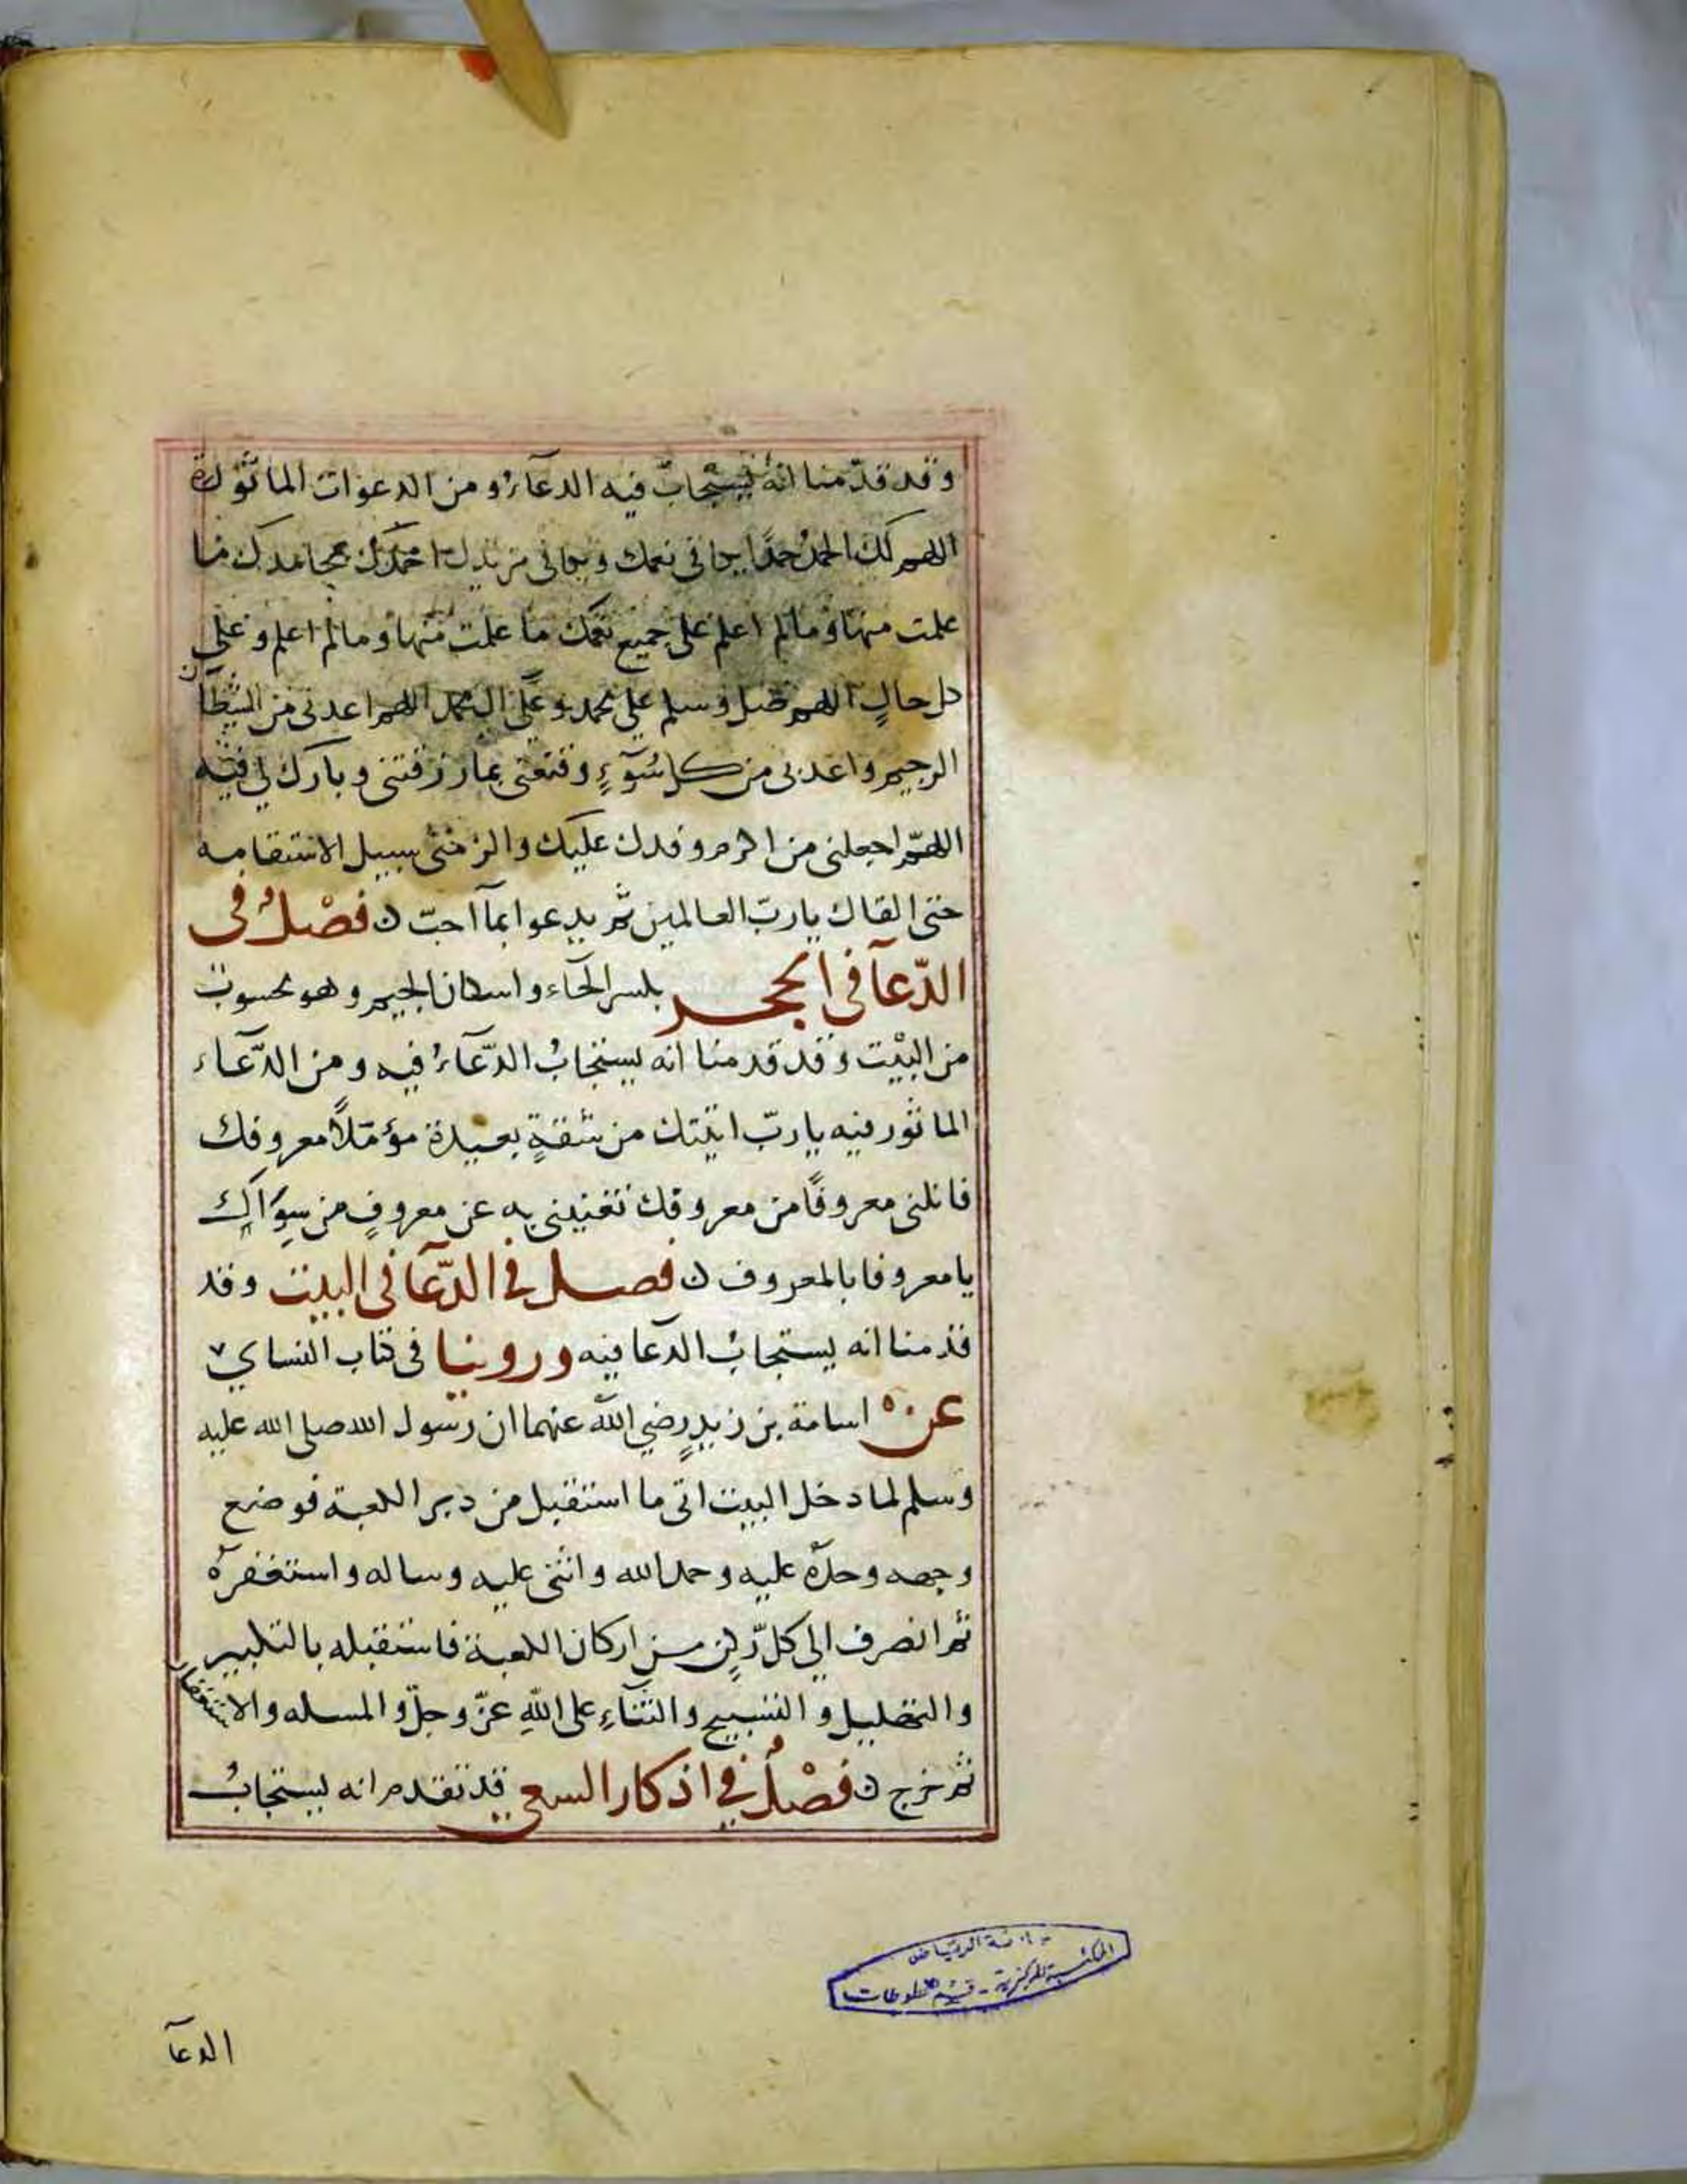 وقد قدّمنا انه يستجاب فيه الدعآء ومن الدعوات الماثورة
اللهم لك الحمد حمدًا يوافى نعمك ويكافى مزيدك احمدك بجميع محامدك ما
علمت منها ومالم اعلم على جميع نعمك ما علمت منها ومالم اعلم وعلى
كل حالٍ اللهم صل وسلم على محمد وعلى ال محمد اللهم اعذنى من الشيطان
الرجيم واعذنى من كل سُوٓءٍ وقنعنى بما رزقتنى وبارك لى فيه
اللهمّ اجعلنى من اكرم وفدك عليك والزمنى سبيل الاستقامه
حتى القاك يارب العالمين ثم يدعوا بمآ احبّ ن فصْلٌ فى
الدّعآ فى الحجر بكسر الحآء واسكان الجيم وهو محسوب
من البيْت وقد قدمنا انه يستجابُ الدّعآءُ فيه ومن الدّعآء
الماثور فيه يا ربّ اتيتك من شقةٍ بعيدة مؤمّلاً معروفك
فانلنى معروفًا من معروفك تغنينى به عن معروفٍ من سِوَاك
يا معروفا بالمعروف ن فصل فى الدّعآ فى البيت وقد
قدمنا انه يستجابُ الدعا فيه وروينا فى كتاب النساي
عن اسامة بن زيدٍ رضي الله عنهما ان رسول الله صلى الله عليه
وسلم لما دخل البيت اتى ما استقبل من دبر الكعبة فوضع
وجهه وخدّه عليه وحمد الله واثنى عليه وساله واستغفره
ثم انصرف الى كل ركنٍ من اركان الكعبة فاستقبله بالتكبير
والتهليل والتسبيح والثنآءِ على اللّهِ عزّ وجلّ والمسله والاستغفار
ثم خرج ن فصْلٌ فى اذكار السعي قد تقدم انه يستجابُ
جامعة الرياض
المكتبة المركزية - قسم المخطوطات
الدعآ